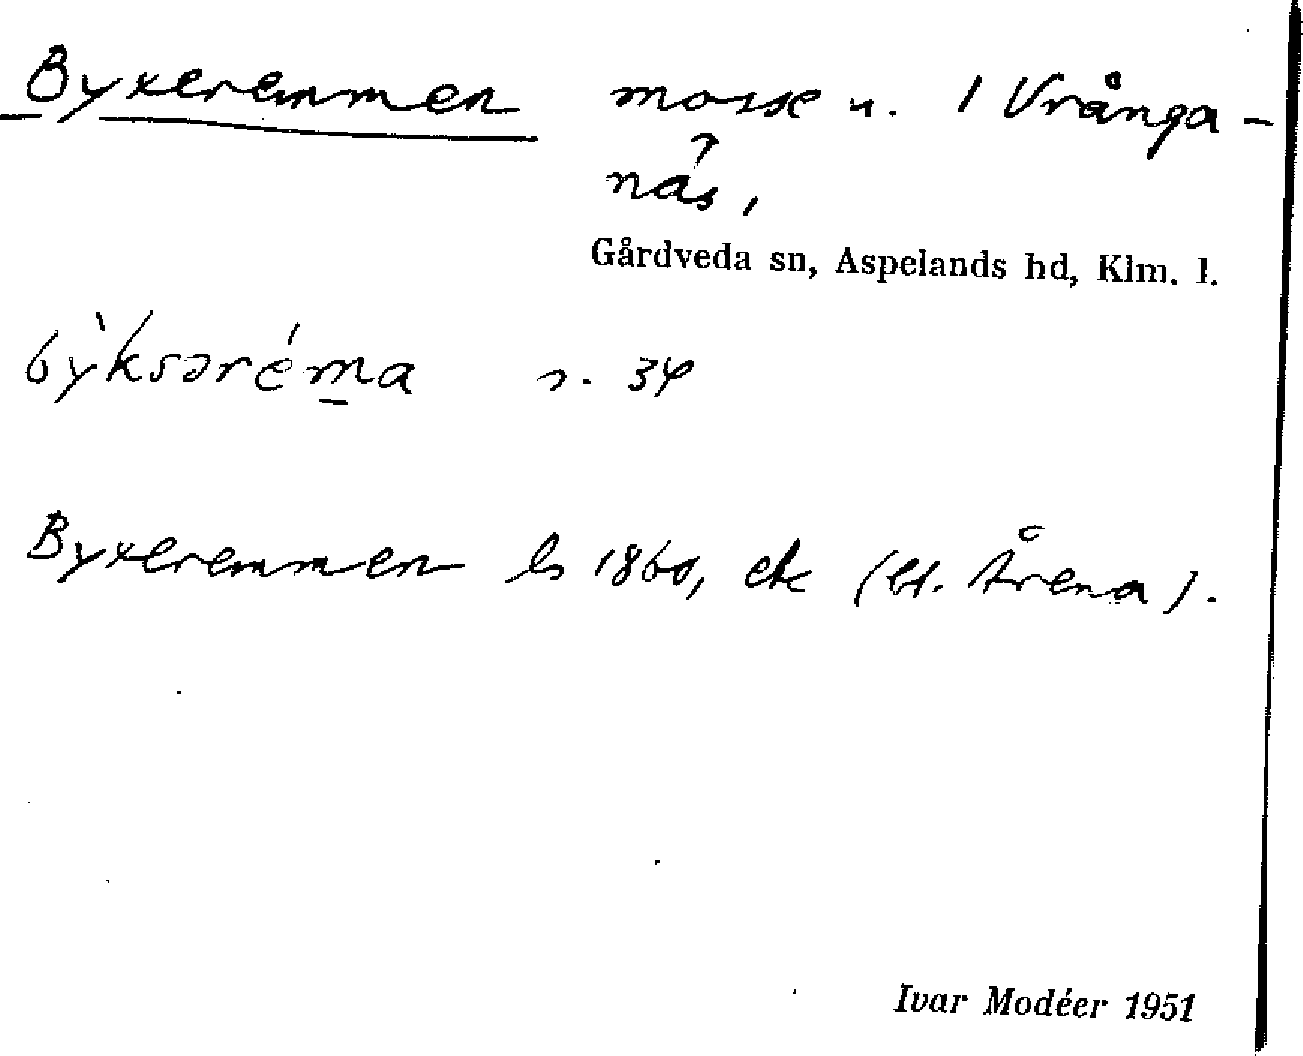 Byxeremmen mosse n. 1 Vrånga-
näs,
Gårdveda sn, Aspelands hd, Klm. l.
by̍ksəréma s. 34
Byxeremmen ls 1860, etc (bl. Årena).
Ivar Modéer 1951